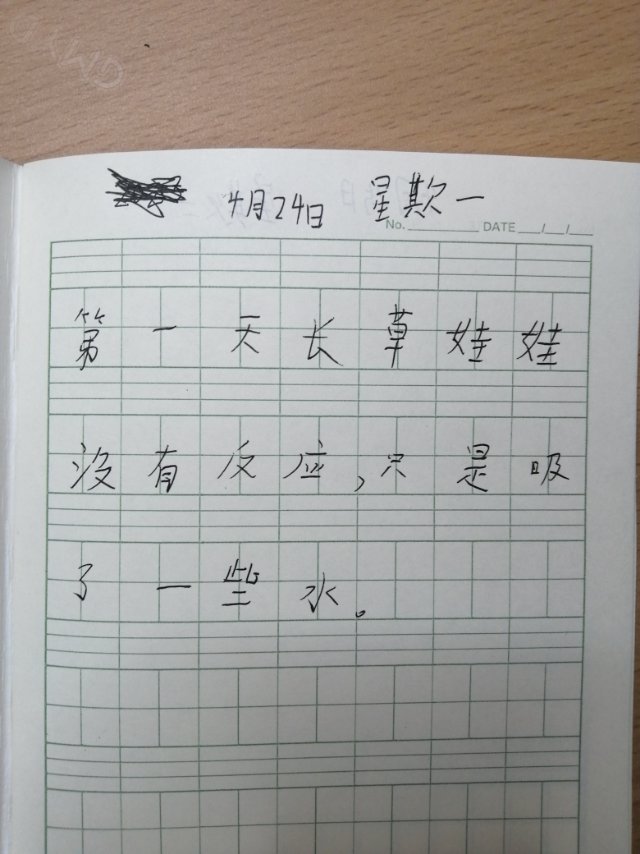 4月24日 星期一
No. DATE / /
第一天长草娃娃
没有反应,只是吸
了一些水。